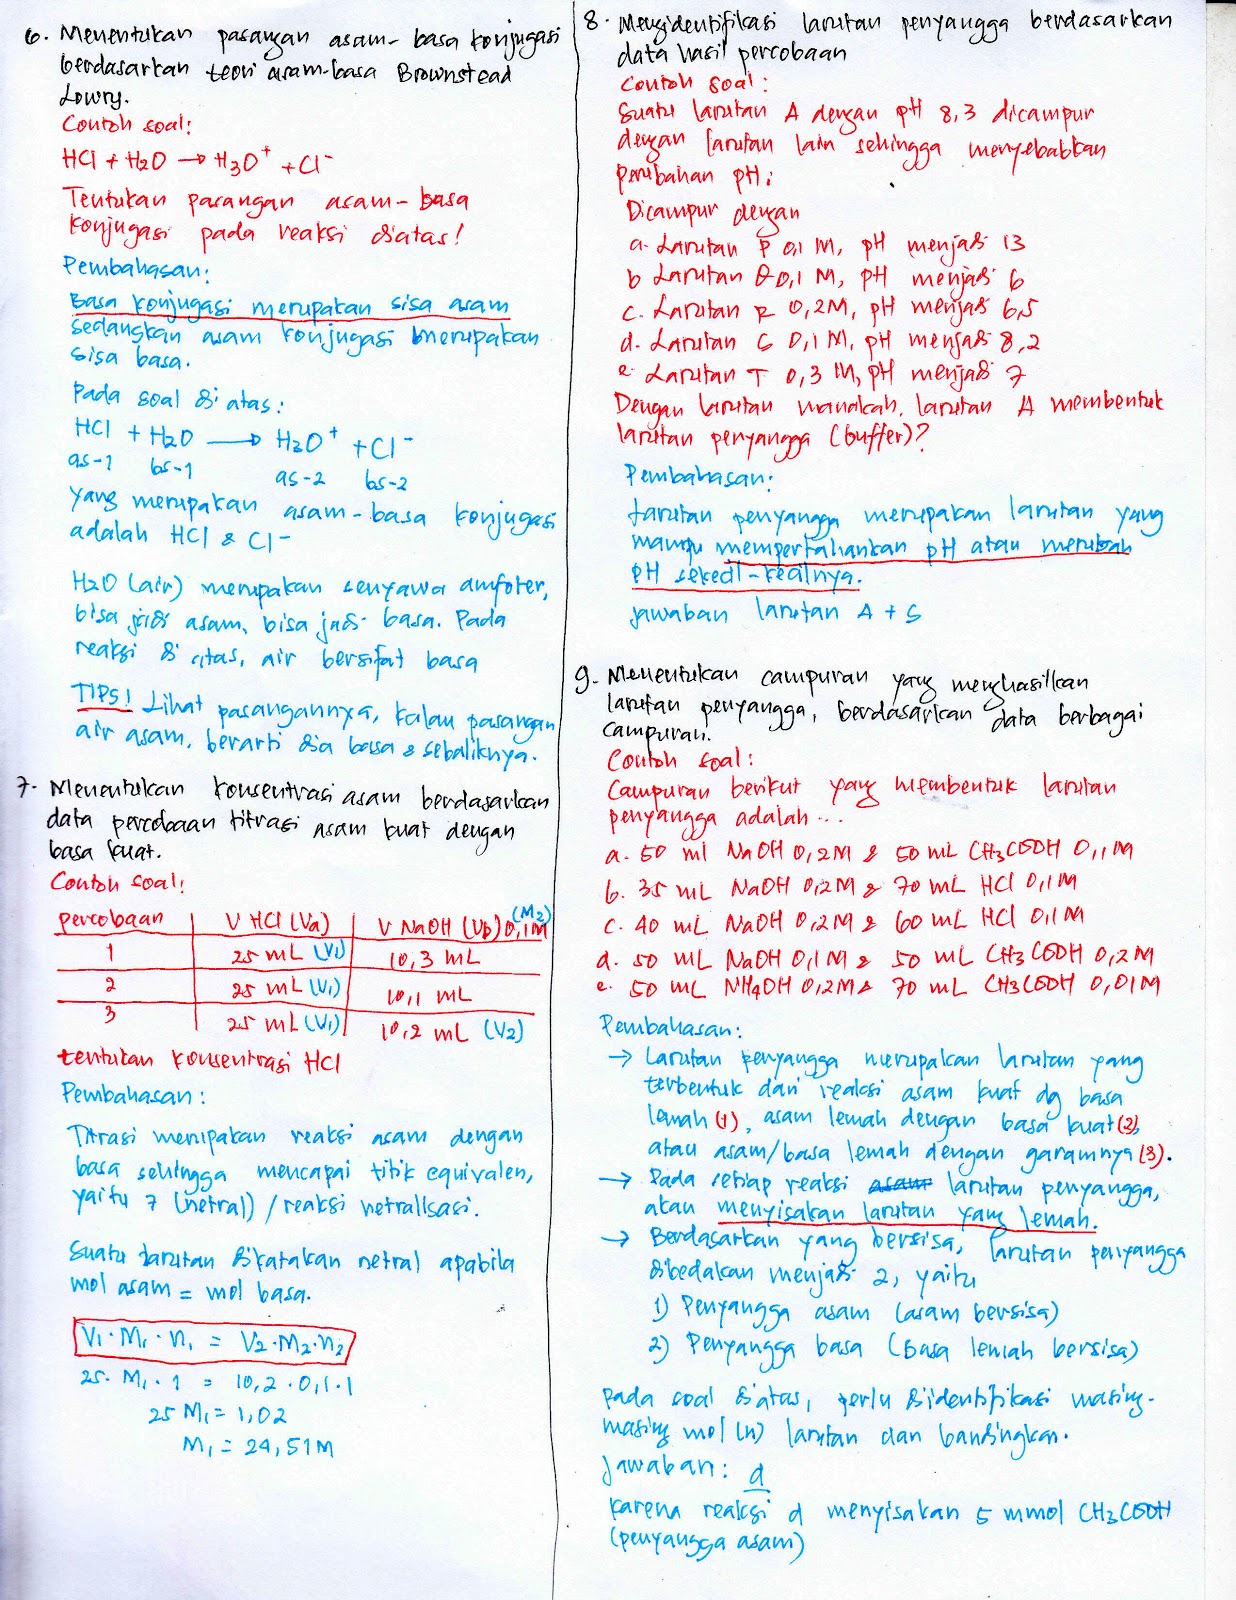 6. Menentukan pasangan asam-basa konjugasi
berdasarkan teori asam-basa Brownstead
Lowry.
Contoh soal:
HCl + H2O → H3O+ + Cl-
Tentukan pasangan asam-basa
konjugasi pada reaksi diatas!
Pembahasan:
Basa konjugasi merupakan sisa asam
sedangkan asam konjugasi merupakan
sisa basa.
Pada soal di atas:
HCl + H2O → H3O+ + Cl-
as-1 bs-1 as-2 bs-2
yang merupakan asam-basa konjugasi
adalah HCl & Cl-
H2O (air) merupakan senyawa amfoter,
bisa jadi asam, bisa jadi basa. Pada
reaksi di atas, air bersifat basa
TIPS! Lihat pasangannya, kalau pasangan
air asam, berarti dia basa & sebaliknya.
7. Menentukan konsentrasi asam berdasarkan
data percobaan titrasi asam kuat dengan
basa kuat.
Contoh soal:
percobaan V HCl (Va) V NaOH (Vb) 0,1M (M2)
1 25 mL (V1) 10,3 mL
2 25 mL (V1) 10,1 mL
3 25 mL (V1) 10,2 mL (V2)
tentukan konsentrasi HCl
Pembahasan:
Titrasi merupakan reaksi asam dengan
basa sehingga mencapai titik equivalen,
yaitu 7 (netral) / reaksi netralisasi.
Suatu larutan dikatakan netral apabila
mol asam = mol basa.
V1 · M1 · n1 = V2 · M2 · n2
25 · M1 · 1 = 10,2 · 0,1 · 1
25 M1 = 1,02
M1 = 24,51 M
8. Mengidentifikasi larutan penyangga berdasarkan
data hasil percobaan
Contoh soal:
Suatu larutan A dengan pH 8,3 dicampur
dengan larutan lain sehingga menyebabkan
perubahan pH:
Dicampur dengan
a. Larutan P 0,1 M, pH menjadi 13
b Larutan Q 0,1 M, pH menjadi 6
c. Larutan R 0,2M, pH menjadi 6,5
d. Larutan S 0,1 M, pH menjadi 8,2
e. Larutan T 0,3 M, pH menjadi 7
Dengan larutan manakah, larutan A membentuk
larutan penyangga (buffer)?
Pembahasan:
Larutan penyangga merupakan larutan yang
mampu mempertahankan pH atau merubah
pH sekecil-kecilnya.
jawaban larutan A + S
9. Menentukan campuran yang menghasilkan
larutan penyangga, berdasarkan data berbagai
campuran.
Contoh soal:
Campuran berikut yang membentuk larutan
penyangga adalah ...
a. 50 ml NaOH 0,2M & 50 mL CH3COOH 0,1M
b. 35 mL NaOH 0,2M & 70 mL HCl 0,1M
c. 40 mL NaOH 0,2M & 60 mL HCl 0,1M
d. 50 mL NaOH 0,1M & 50 mL CH3COOH 0,2M
e. 50 mL NH4OH 0,2M & 70 mL CH3COOH 0,01M
Pembahasan:
→ Larutan penyangga merupakan larutan yang
terbentuk dari reaksi asam kuat dg basa
lemah (1), asam lemah dengan basa kuat (2),
atau asam/basa lemah dengan garamnya (3).
→ Pada setiap reaksi asam larutan penyangga,
akan menyisakan larutan yang lemah.
→ Berdasarkan yang bersisa, larutan penyangga
dibedakan menjadi 2, yaitu
1) Penyangga asam (asam bersisa)
2) Penyangga basa (Basa lemah bersisa)
Pada soal diatas, perlu diidentifikasi masing-
masing mol (n) larutan dan bandingkan.
Jawaban: d
karena reaksi d menyisakan 5 mmol CH3COOH
(penyangga asam)